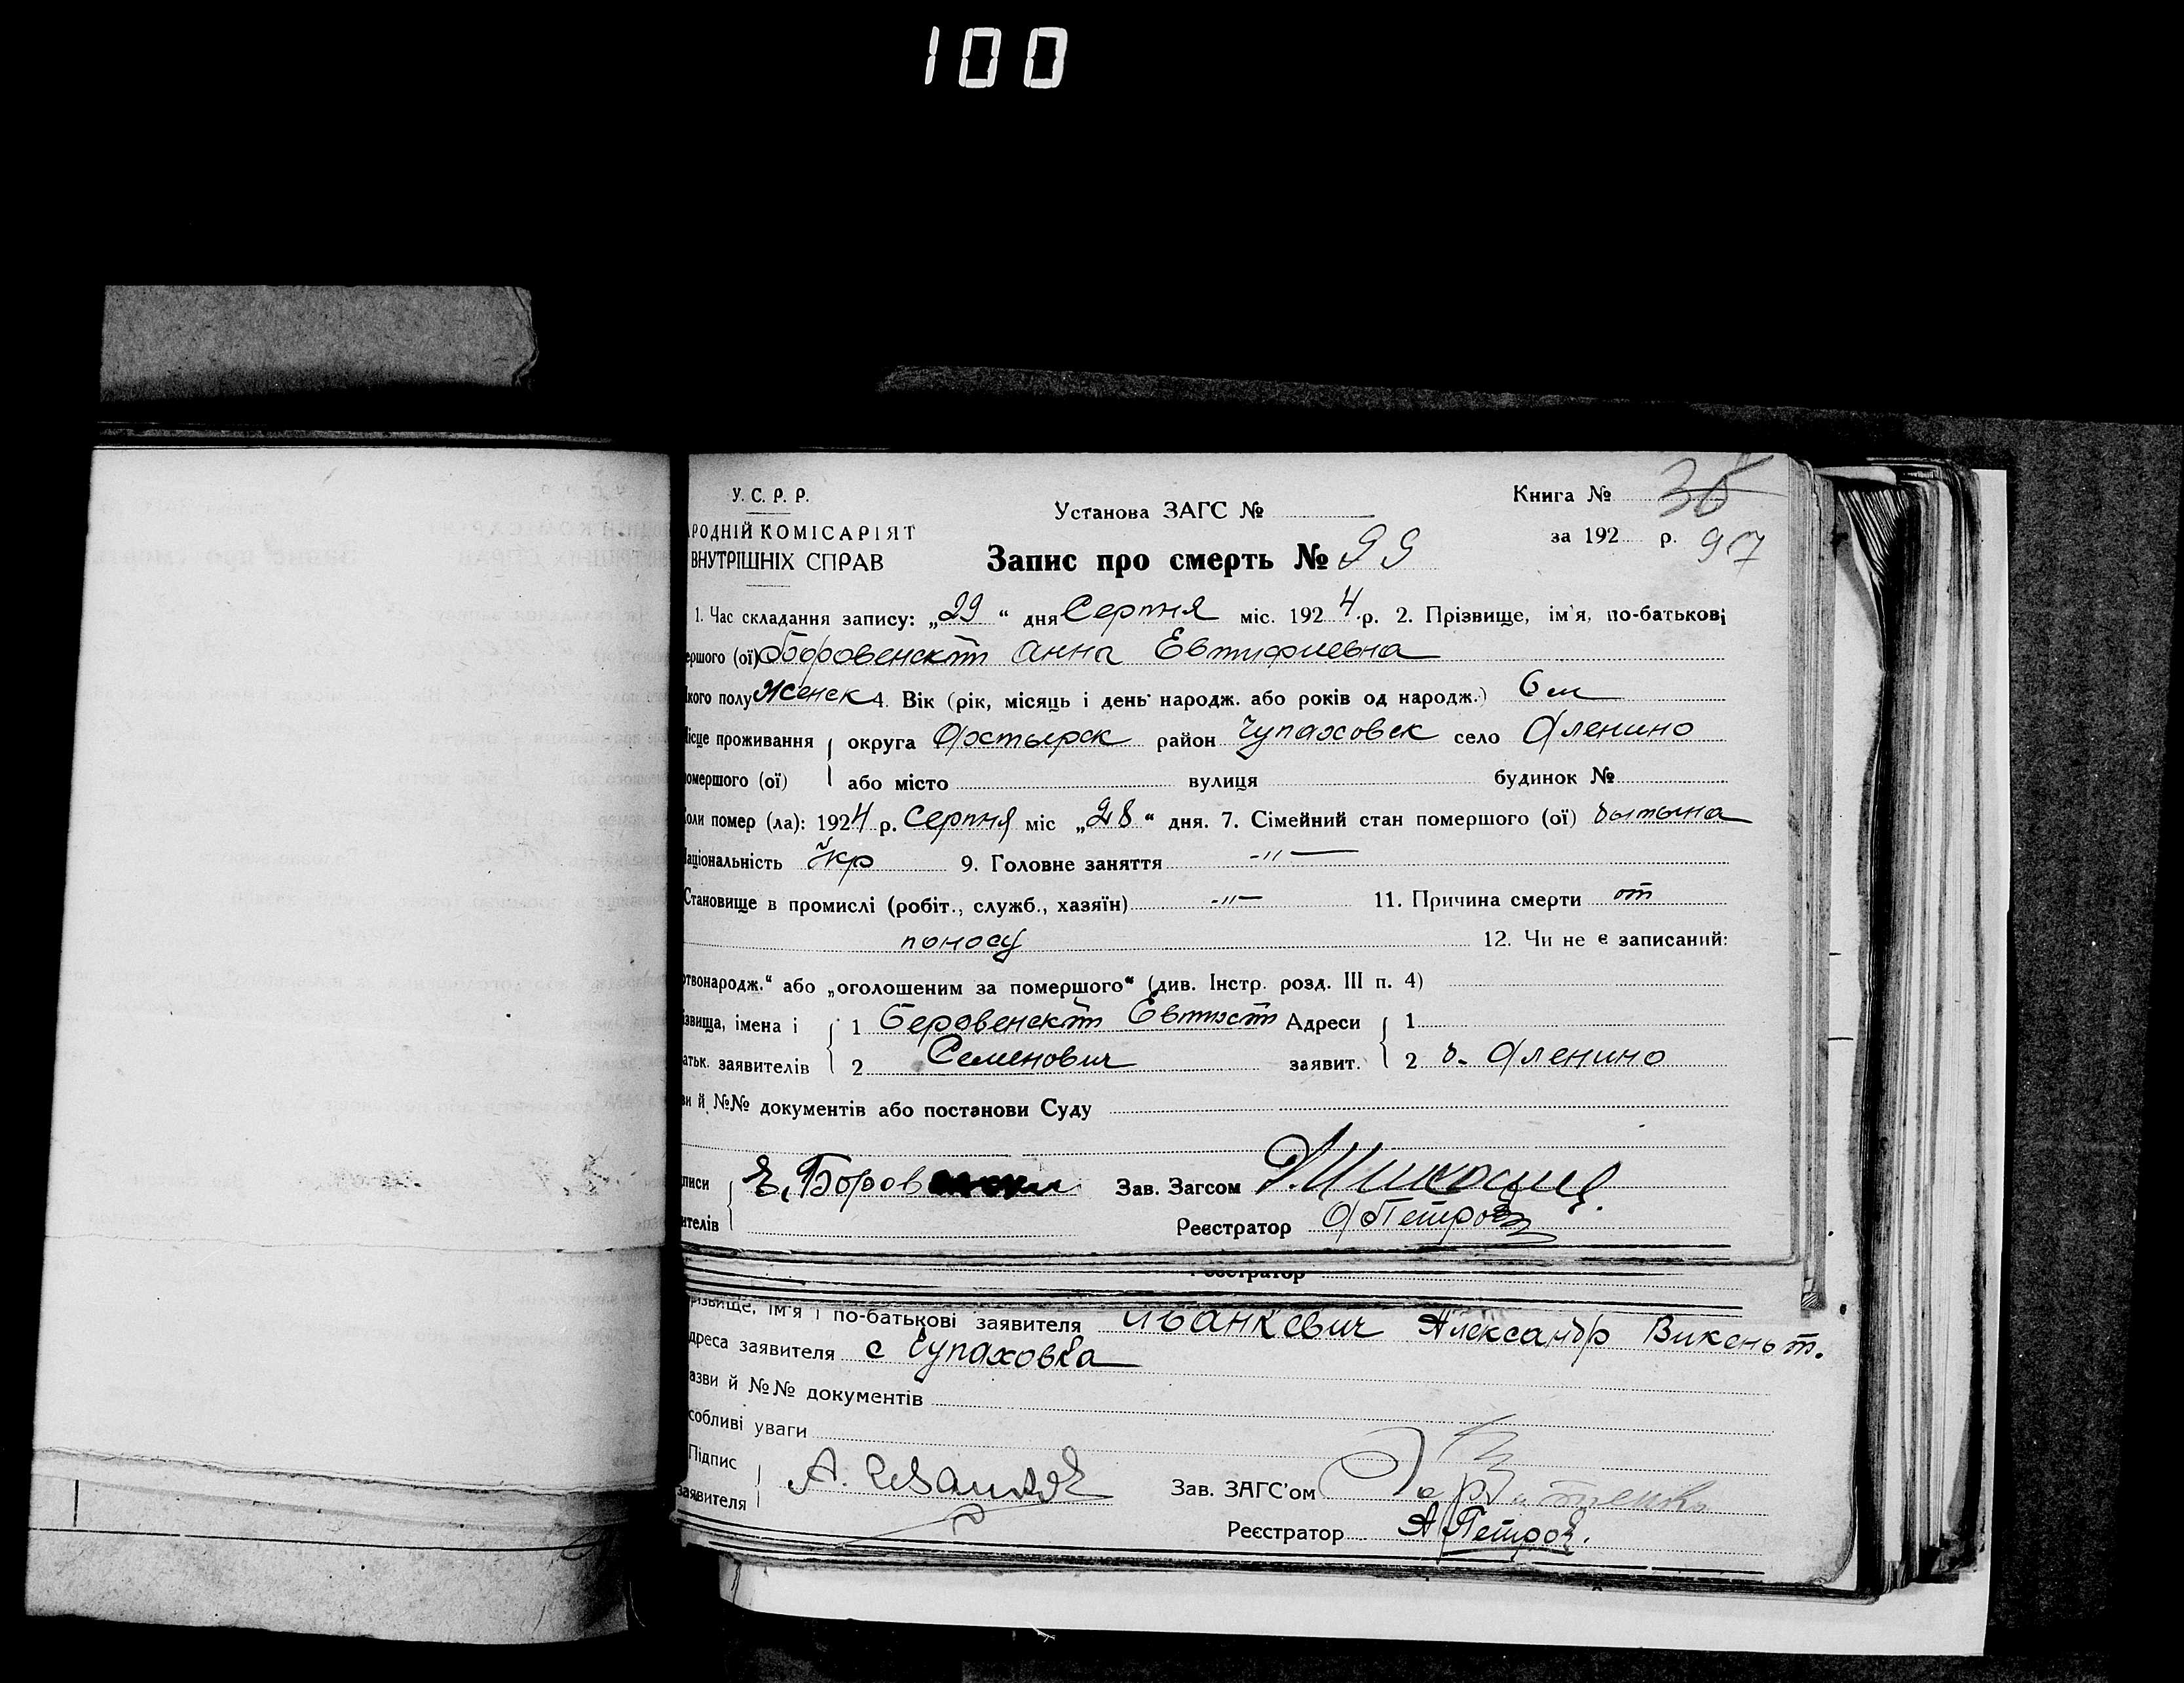 100
У. С. Р. Р.
Установа ЗАГС №
Книга № 38
РОДНІЙ КОМІСАРІЯТ
ВНУТРІШНІХ СПРАВ
за 192 р. 97
Запис про смерть № 99
1. Час складання запису: „29“ дня Серпня міс. 1924 р. 2. Прізвище, ім'я, по-батькові
ершого (ої) Анна Евтифиевна
кого полу женск 4. Вік (рік, місяць і день народж. або років од народж.) 6 м
ісце проживання округа Ахтырск район Чупаховск село Аленино
омершого (ої) або місто вулиця будинок №
оли помер (ла): 1924 р. Серпня міс „28“ дня. 7. Сімейний стан помершого (ої)
аціональність Укр 9. Головне заняття -„-
Становище в промислі (робіт., служб., хазяїн) -„- 11. Причина смерти от
поносу 12. Чи не є записаний:
ртвонародж.“ або „оголошеним за помершого“ (див. Інстр. розд. III п. 4)
ізвища, імена і 1 Адреси 1
атьк. заявителів 2 Семенович заявит. 2 Аленино
ви й №№ документів або постанови Суду
писи Зав. Загсом
ителів Реєстратор А Петров
Реєстратор
різвище, ім'я і по-батькові заявителя Иванкевич Александр Викеньт.
дреса заявителя с Чупаховка
азви й №№ документів
собливі уваги
Підпис
заявителя
Зав. ЗАГС'ом
Реєстратор А Петров.